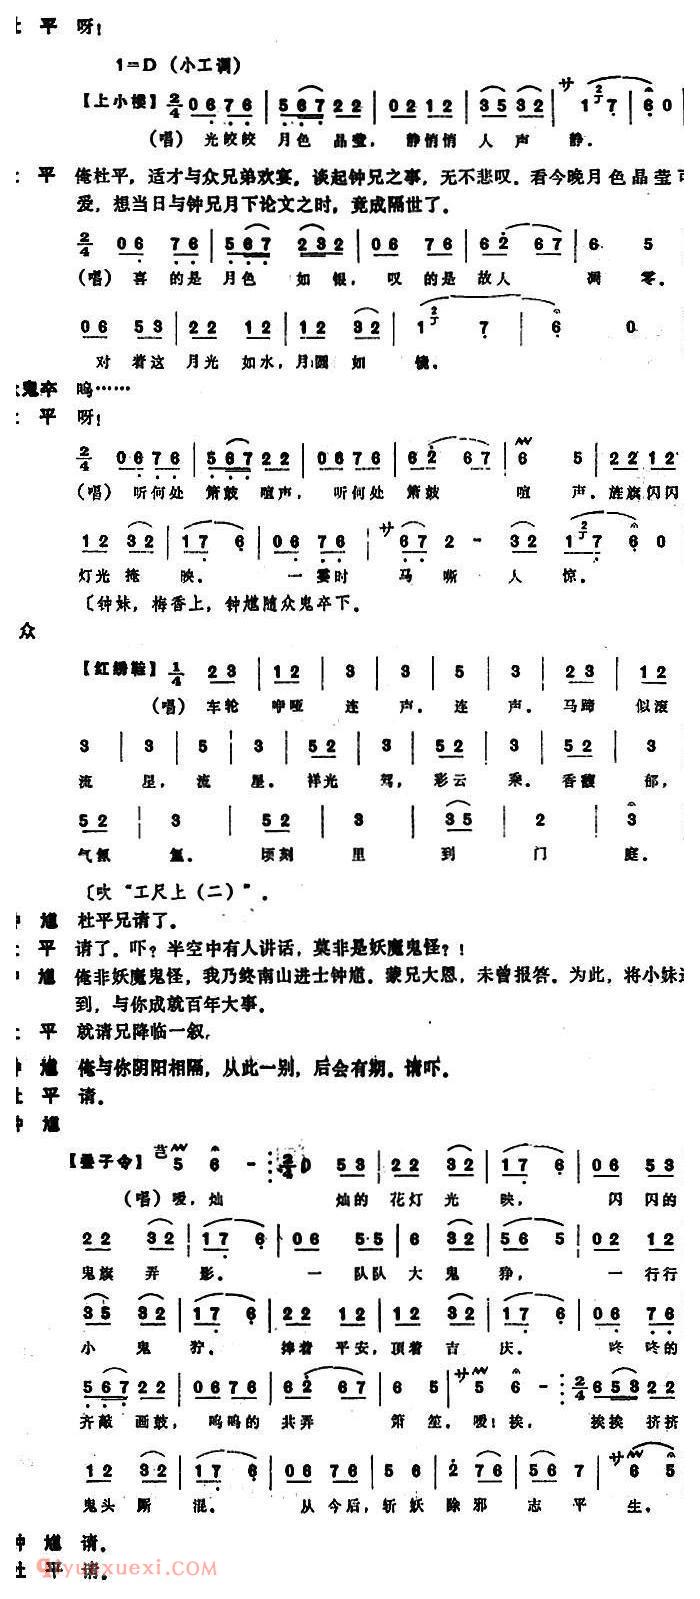 平 呀！
1=D（小工调）
【上小楼】2/4 0 6 7 6 | 5 6 7 2 2 | 0 2 1 2 | 3 5 3 2 | サ 1 7 | 6 0
（唱）光皎皎 月色 晶莹，静悄悄 人 声 静。
平 俺杜平，适才与众兄弟欢宴。谈起钟兄之事，无不悲叹。看今晚月色晶莹可
爱，想当日与钟兄月下论文之时，竟成隔世了。
2/4 0 6 7 6 | 5 6 7 2 3 2 | 0 6 7 6 | 6 2 6 7 | 6 5
（唱）喜 的是 月色 如 银，叹 的是 故人 凋 零。
0 6 5 3 | 2 2 1 2 | 1 2 3 2 | 1 7 | 6 0
对 着这 月光 如水，月圆 如 镜。
鬼卒 呜……
平 呀！
2/4 0 6 7 6 | 5 6 7 2 2 | 0 6 7 6 | 6 2 6 7 | 6 5 | 2 2 1 2
（唱）听何处 箫鼓 喧声，听何处 箫鼓 喧 声。旌旗闪闪
1 2 3 2 | 1 7 6 | 0 6 7 6 | サ 6 7 2 - 3 2 | 1 7 6 0
灯光 掩 映。 一霎时 马 嘶 人 惊。
〔钟妹，梅香上，钟馗随众鬼卒下。
众
【红绣鞋】1/4 2 3 | 1 2 | 3 | 3 | 5 | 3 | 2 3 | 1 2
（唱）车轮 咿哑 连 声。连 声。马蹄 似滚
3 | 3 | 5 | 3 | 5 2 | 3 | 5 2 | 3 | 5 2 | 3
流 星，流 星。祥光 驾，彩云 乘。香馥 郁，
5 2 | 3 | 5 2 | 3 | 3 5 | 2 | 3
气氤 氲。顷刻 里 到 门 庭。
〔吹“工尺上（二）”。
馗 杜平兄请了。
平 请了。吓？半空中有人讲话，莫非是妖魔鬼怪？！
馗 俺非妖魔鬼怪，我乃终南山进士钟馗。蒙兄大恩，未曾报答。为此，将小妹送
到，与你成就百年大事。
平 就请兄降临一叙，
馗 俺与你阴阳相隔，从此一别，后会有期。请吓。
杜平 请。
馗
【叠子令】サ 5 6 - 2/4 0 5 3 | 2 2 3 2 | 1 7 6 | 0 6 5 3
（唱）嗳，灿 灿的 花灯 光 映， 闪闪的
2 2 3 2 | 1 7 6 | 0 6 5·5 | 6 3 2 | 5 6 5 | 0 2 1 2
鬼旗 弄 影。 一 队队 大 鬼 狰， 一 行行
3 5 3 2 | 1 7 6 | 2 2 1 2 | 1 2 3 2 | 1 7 6 | 0 6 7 6
小 鬼 狞。 捧着 平安，顶着 吉 庆。 咚 咚的
5 6 7 2 2 | 0 6 7 6 | 6 2 6 7 | 6 5 | サ 5 6 - 2/4 6 5 3 2 2
齐敲 画鼓，呜呜的 共弄 箫 笙。嗳！挨， 挨挨 挤挤
1 2 3 2 | 1 7 6 | 0 6 7 6 | 5 6 | 2 7 6 | 5 6 7 | サ 6 5
鬼头 厮 混。 从 今后，斩 妖 除 邪 志 平 生。
钟馗 请。
杜平 请。
qiyuexuexi.com